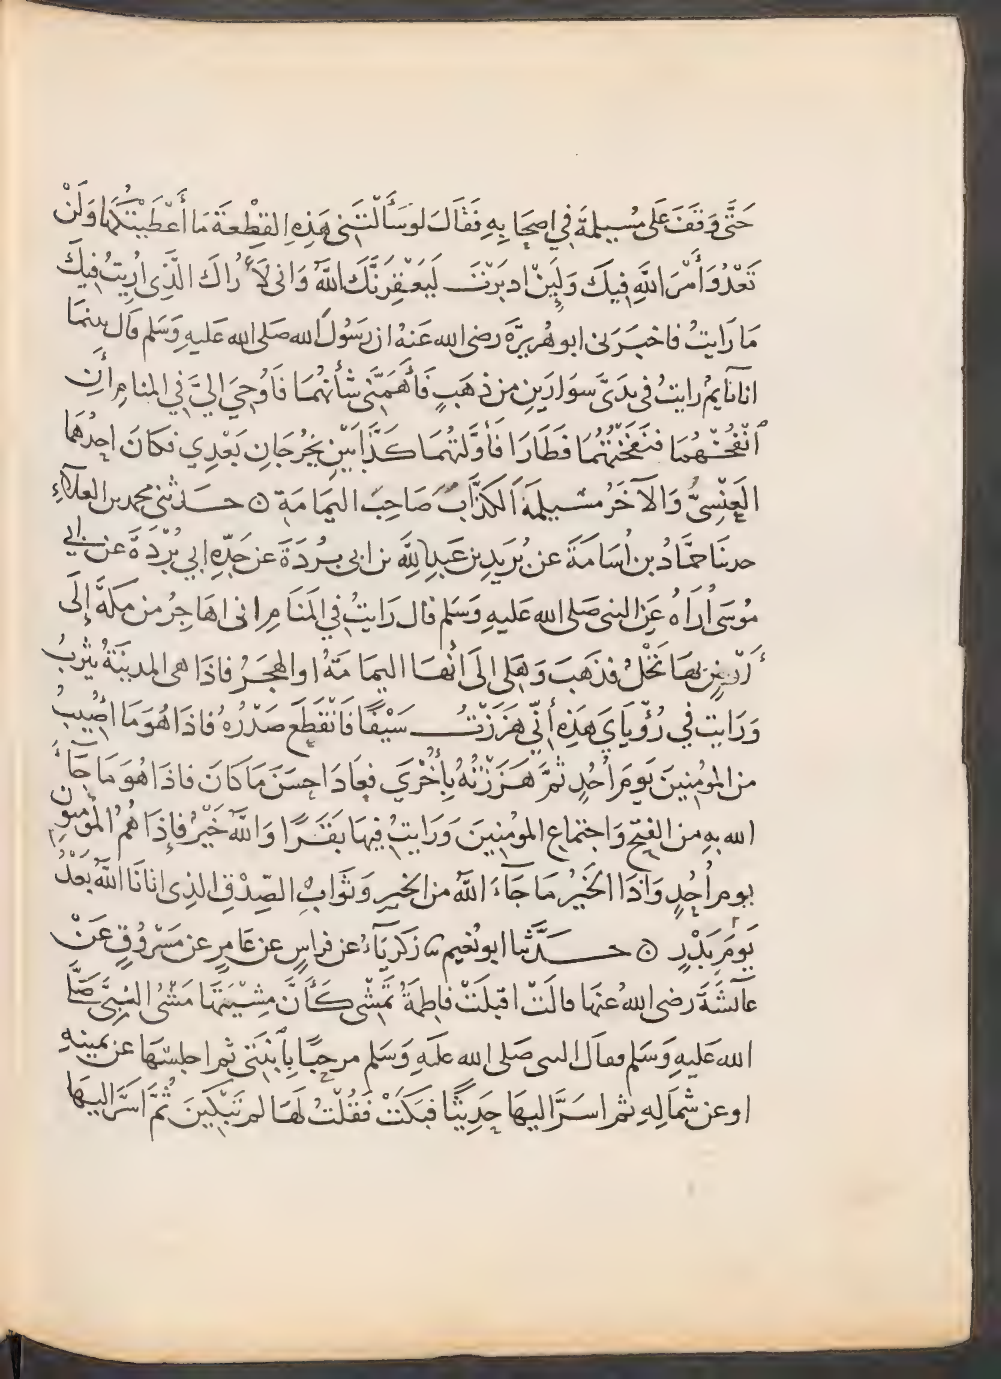 حَتَّى وَقَفَ عَلَى مُسَيلمةَ في اصحَابِهِ فَقَالَ لَو سَأَلْتَنِى هَذِهِ القِطْعَةَ مَا أَعْطَيْتُكَهَا وَلَنْ
تَعْدُوَ أَمْرَ اللَّهِ فِيكَ وَلَئِنْ ادبَرْتَ لَيَعْقِرَنَّكَ اللَّهُ وَانى لَأُرَاكَ الَّذِى اُرِيتُ فيكَ
مَا رَايتُ فاخبَرَنى ابو هُرَيرَةَ رضى الله عَنهُ ان رَسُولَ الله صَلى الله عَليهِ وَسَلم قَال بينمَا
انا نَايمُ رايتُ فى يَدَىَّ سوَارَينِ من ذهَبٍ فَأَهَمَّنى شَأنُهُمَا فَاُوحِيَ اليَّ في المنامِ أَنِ
اُنْفُخْهُمَا فنَفَخْتُهُمَا فَطَارَا فَأوَّلتهُمَا كَذَّابَيْنِ يخرُجَانِ بَعْدِي فكَانَ احدُهمَا
العَنْسِيُّ وَالآخَرُ مُسَيلمَةَ الكَذَّابُ صَاحِبُ اليمَامَةِ ۞ حَدثنى محمد بن العَلآءِ
حدثنا حمَّادُ بن اُسَامَةَ عن بُرَيدِ بن عَبدِ اللَّهِ بن ابى بُردَةَ عن جَدِّهِ ابي بُرْدَةَ عن ابي
مُوسَى اُرَاهُ عَنِ النبى صَلى الله عَليهِ وَسَلم قال رَايتُ في المَنَامِ انى اهَاجِرُ من مكةَ إِلَى
أَرْضٍ بهَا نَخْلٌ فذَهَبَ وَهَلى الَى أنَّهَا اليمَامَةُ او الهجَرُ فاذَا هى المدينَةُ يثربُ
وَرَايت في رُؤْيَايَ هَذِهِ أَنِّى هَزَزْتُ سَيْفًا فَانْقَطَعَ صَدْرُهُ فاذَا هُوَ مَا اُصِيبَ
من المؤمِنينَ يَومَ اُحُدٍ ثمَّ هَزَزْتُهُ بِأُخْرَي فعَادَ احسَنَ مَا كَانَ فاذَا هُوَ مَا جَآءَ
الله بِهِ من الفتحِ وَاجتماعِ المومِنينَ وَرَايتُ فِيهَا بَقَرًا وَاللَّهُ خَيْرٌ فاِذَا هُمُ المُؤمنونَ
يومَ اُحُدٍ وَاذَا الخَيرُ مَا جَآءَ اللَّهُ من الخيرِ وَثَوَابِ الصِّدْقِ الذِى اتَانَا اللَّهُ بَعْدُ
يَومَ بَدْرٍ ۞ حَدَّثنا ابو نُعيم ثنا زكَرِيَّاءُ عن فراسٍ عن عَامِرٍ عن مَسْروُقٍ عَنْ
عآئشَةَ رضى اللهُ عنهَا قالَتْ اقبَلَتْ فاطمَةُ تَمشى كَأَنَّ مِشْيَتَهَا مَشْىُ النَّبِىِّ صَلَّى
الله عَليهِ وَسَلم فقال النبى صَلى الله عَليهِ وَسَلم مرحبًا بِابْنَتى ثم اجلسَهَا عن يمينهِ
او عن شمَالِهِ ثم اسَرَّ اليهَا حَدِيثًا فبَكَتْ فَقُلتُ لهَا لم تَبْكِينَ ثُمَّ اسَرَّ اليهَا